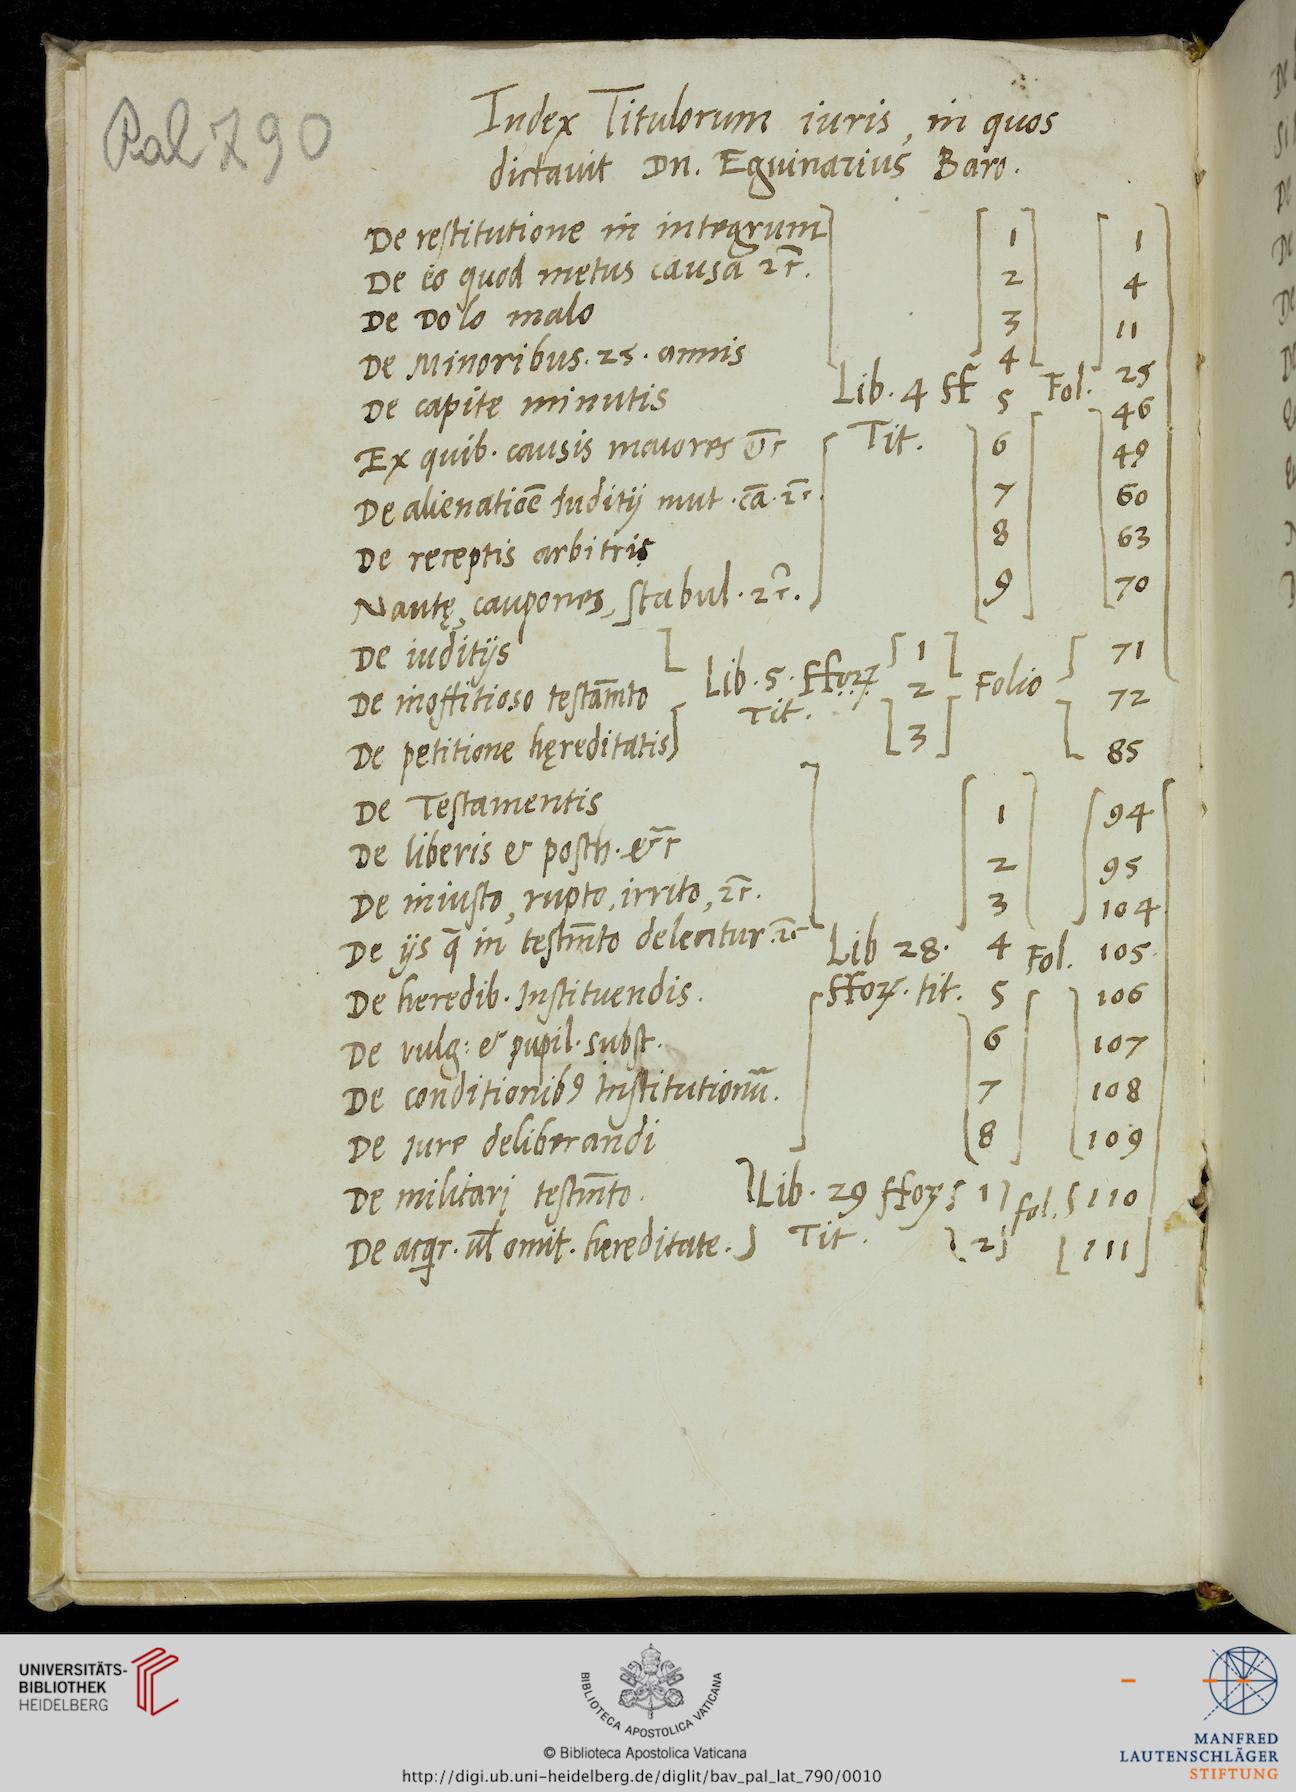 Pal 790
Index Titulorum iuris, in quos
dictauit Dn. Eguinarius Baro.
De restitutione in integrum 1 1
De eo quod metus causa 2c. 2 4
De Dolo malo 3 11
De Minoribus. 25. annis 4 25
De capite minutis Lib. 4 ff 5 Fol. 46
Ex quib. causis maiores &c Tit. 6 49
De alienatiōe Iuditij mut. cā. 2c. 7 60
De receptis arbitris 8 63
Nautę, caupones, stabul. 2c. 9 70
De iuditijs 1 71
De inoffitioso testam̄to Lib. 5. fforꝝ Tit. 2 Folio 72
De petitione hęreditatis 3 85
De Testamentis 1 94
De liberis & posth. &c 2 95
De iniusto, rupto, irrito, 2c. 3 104
De ijs q̄ in testm̄to delentur 2c Lib 28. 4 Fol. 105.
De heredib. Instituendis. ffoꝝ. tit. 5 106
De vulg: & pupil. subst. 6 107
De conditionib9 Institutionū. 7 108
De Iure deliberandi 8 109
De militari testm̄to. Lib. 29 ffoꝝ 1 fol. 110
De acqr. ul̄ omit. hereditate. Tit. 2 111
UNIVERSITÄTS-
BIBLIOTHEK
HEIDELBERG
BIBLIOTECA APOSTOLICA VATICANA
© Biblioteca Apostolica Vaticana
http://digi.ub.uni-heidelberg.de/diglit/bav_pal_lat_790/0010
MANFRED
LAUTENSCHLÄGER
STIFTUNG